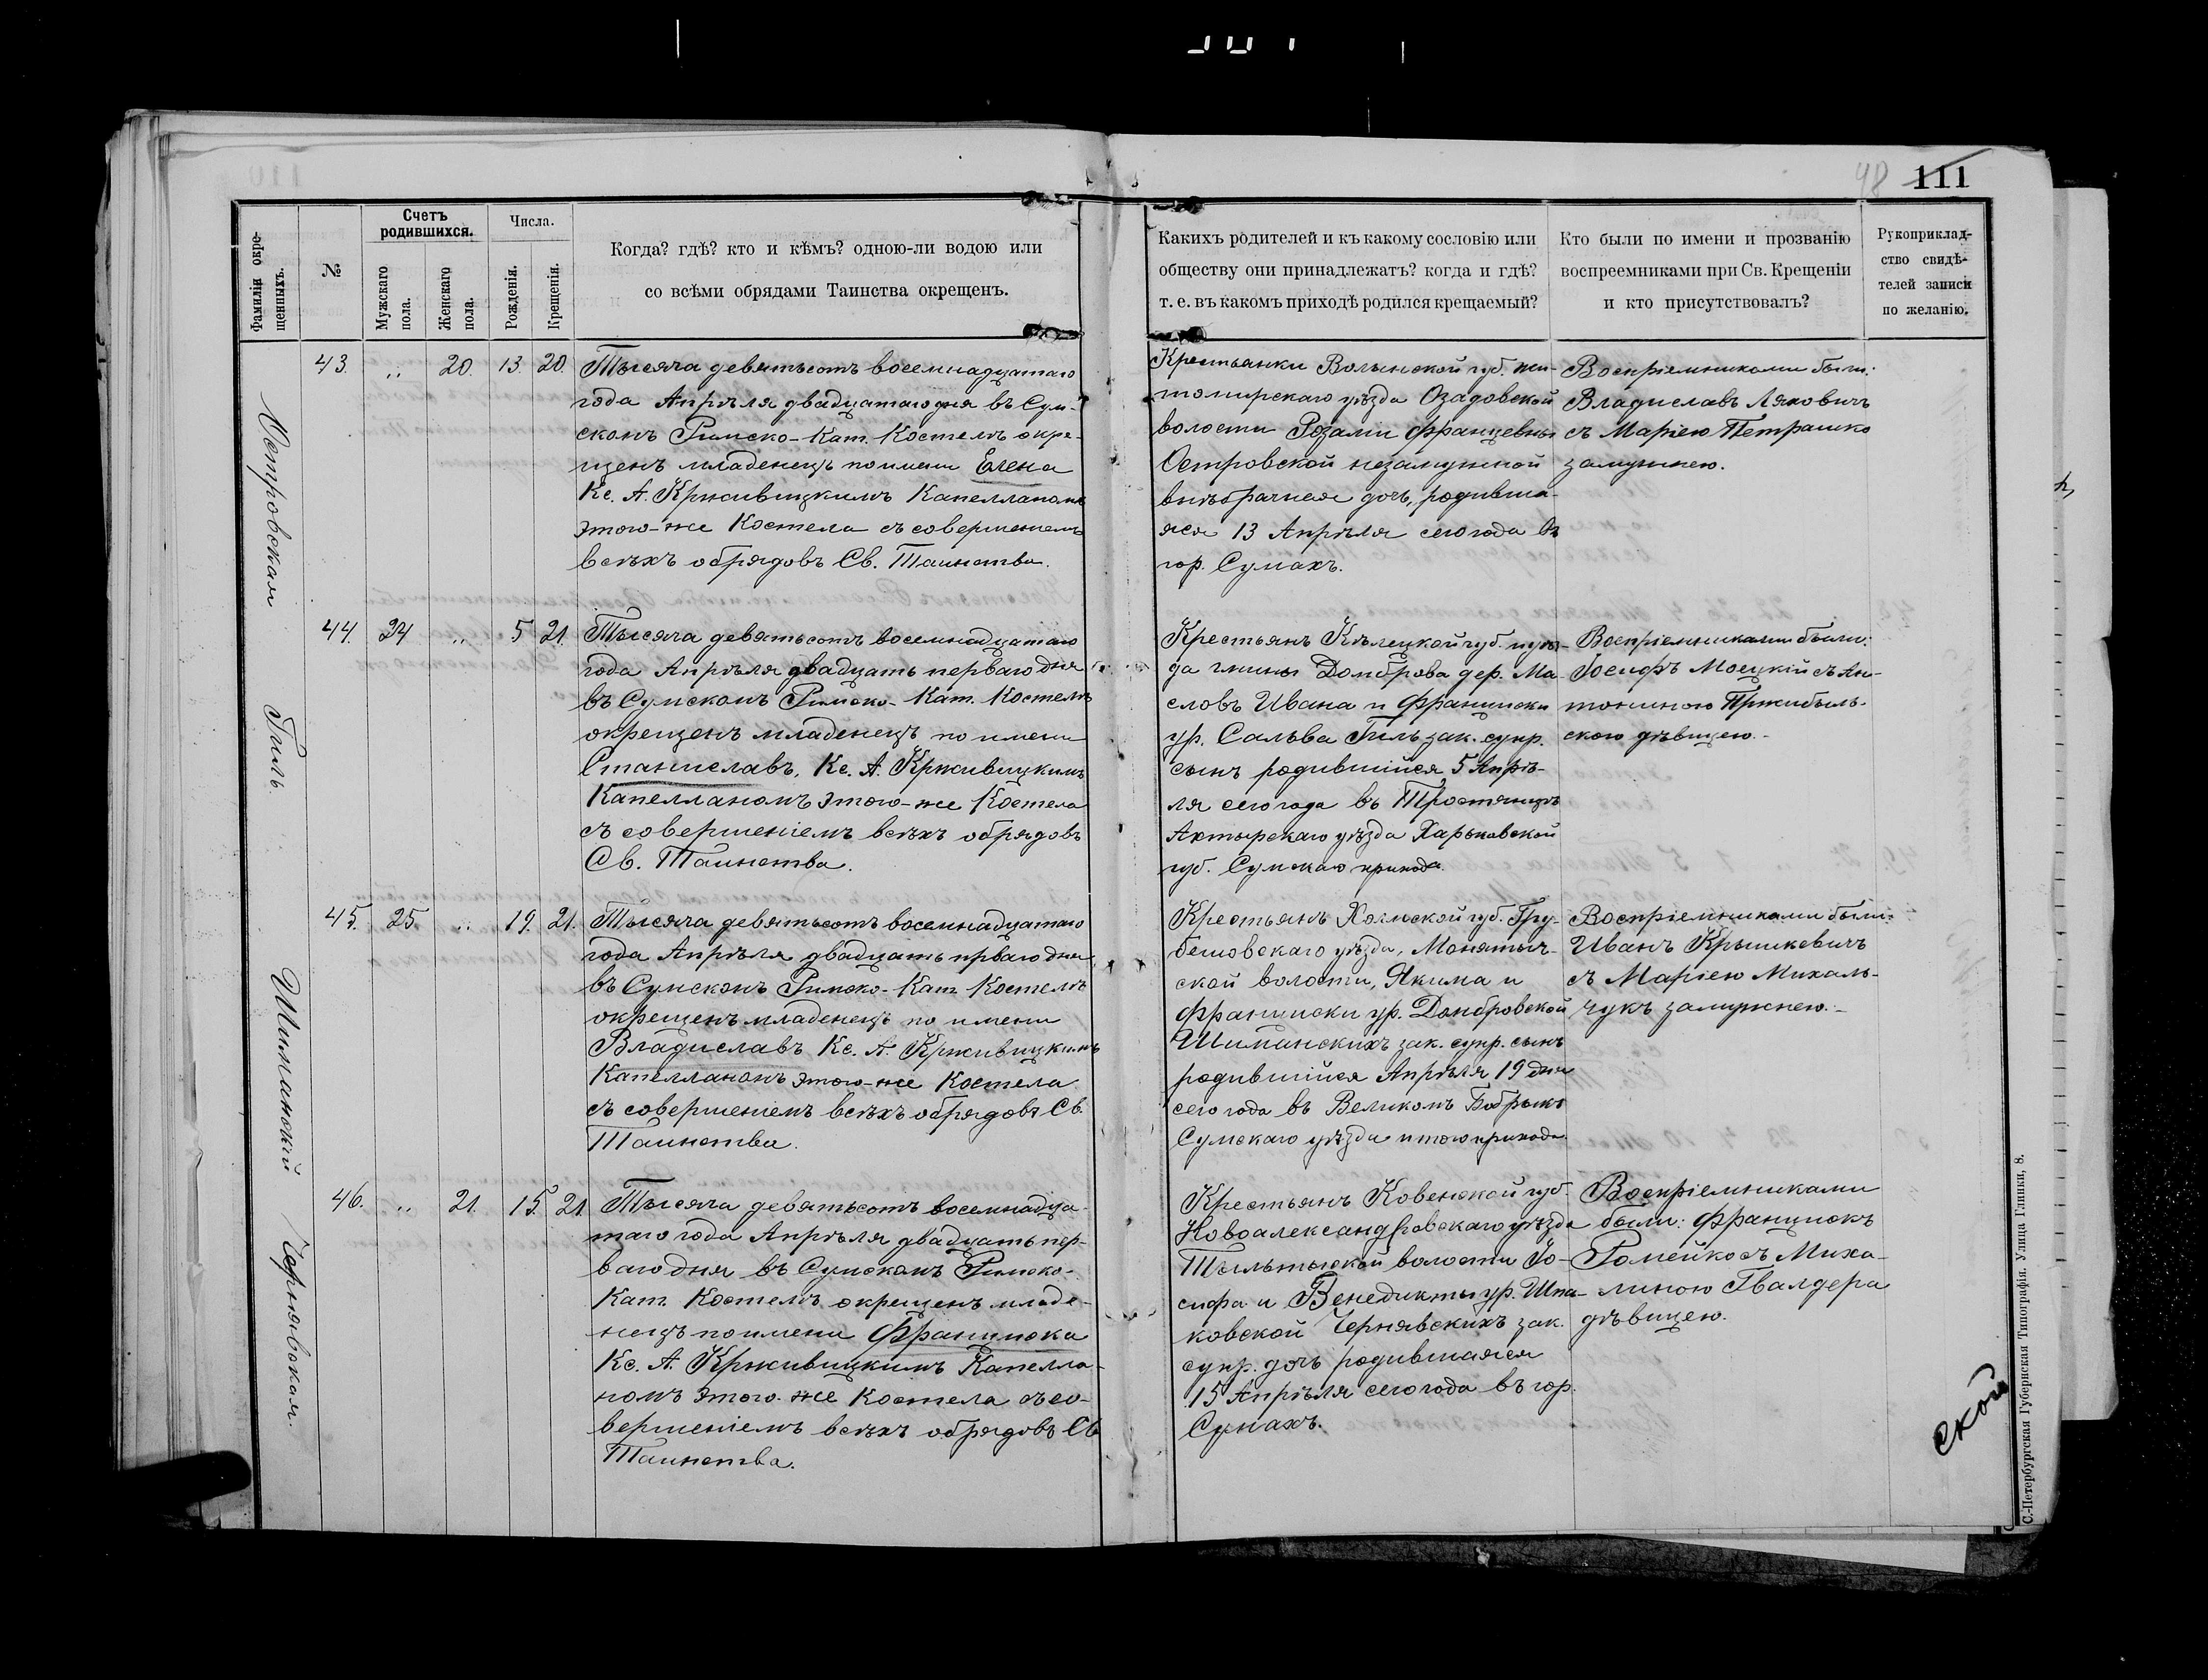 48 111
Фамиліи окре-
щенныхъ.
№
Счетъ
родившихся.
Мужскаго
пола.
Женскаго
пола.
Числа.
Рожденія.
Крещенія.
Когда? гдѣ? кто и кѣмъ? одною-ли водою или
со всѣми обрядами Таинства окрещенъ.
Какихъ родителей и къ какому сословію или
обществу они принадлежатъ? когда и гдѣ?
т. е. въ какомъ приходѣ родился крещаемый?
Кто были по имени и прозванію
воспреемниками при Св. Крещеніи
и кто присутствовалъ?
Рукоприклад-
ство свидѣ-
телей записи
по желанію.
Островская
43. „ 20. 13. 20.
Тысяча девятьсотъ восемнадцатаго
года Апрѣля двадцатаго дня въ Сум-
скомъ Римско-Кат. Костелѣ окре-
щенъ младенецъ по имени Елена
Кс. А. Крживицкимъ Капелланомъ
этого-же Костела съ совершеніемъ
всѣхъ обрядовъ Св. Таинства.
Крестьянки Волынской губ. жи-
томирскаго уѣзда Озадовской
волости Розаліи Францевны
Островской незамужней
внѣбрачная дочь, родивша-
яся 13 Апрѣля сего года въ
гор. Сумахъ.
Воспріемниками были:
Владиславъ Ляховичъ
съ Маріею Петрашко
замужнею.
Гиль
44. 24 „ 5 21.
Тысяча девятьсотъ восемнадцатаго
года Апрѣля двадцать перваго дня
въ Сумскомъ Римско-Кат. Костелѣ
окрещенъ младенецъ по имени
Станиславъ, Кс. А. Крживицкимъ
Капелланомъ этого-же Костела
съ совершеніемъ всѣхъ обрядовъ
Св. Таинства.
Крестьянъ Кѣлецкой губ. и уѣз-
да гмины Домброва дер. Ма-
словъ Ивана и Франциски
ур. Сальва Гиль зак. супр.
сынъ родившійся 5 Апрѣ-
ля сего года въ Тростянцѣ
Ахтырскаго уѣзда Харьковской
губ. Сумскаго прихода.
Воспріемниками были:
Іосифъ Моецкій съ Ан-
тониною Пржибыль-
скою дѣвицею.
Шиманскій
45. 25. „ 19. 21.
Тысяча девятьсотъ восемнадцатаго
года Апрѣля двадцать прваго дня
въ Сумскомъ Римско-Кат. Костелѣ
окрещенъ младенецъ по имени
Владиславъ Кс. А. Крживицкимъ
Капелланомъ этого-же Костела
съ совершеніемъ всѣхъ обрядовъ Св.
Таинства.
Крестьянъ Холмской губ. Гру-
бешовскаго уѣзда, Монятыч-
ской волости, Якима и
Франциски ур. Домбровской
Шиманскихъ зак. супр. сынъ
родившійся Апрѣля 19 дня
сего года въ Великомъ Бобрыкѣ
Сумскаго уѣзда и того прихода.
Воспріемниками были:
Иванъ Крышкевичъ
съ Маріею Михаль-
чукъ замужнею.
Чернявская.
46. „ 21. 15. 21.
Тысяча девятьсотъ восемнадца-
таго года Апрѣля двадцать пер-
ваго дня въ Сумскомъ Римско-
Кат. Костелѣ окрещенъ младе-
нецъ по имени Франциска
Кс. А. Крживицкимъ Капелла-
номъ этого-же Костела съ со-
вершеніемъ всѣхъ обрядовъ Св
Таинства.
Крестьянъ Ковенской губ.
Новоалександровскаго уѣзда
волости Іо-
сифа и Венедикты ур. Шпа-
ковской Чернявскихъ зак.
супр. дочь родившаяся
15 Апрѣля сего года въ гор.
Сумахъ.
Воспріемниками
были: Францискъ
Ромейко съ Миха-
линою Гвалдера
дѣвицею.
ской
С.-Петербургская Губернская Типографія. Улица Глинки, 8.